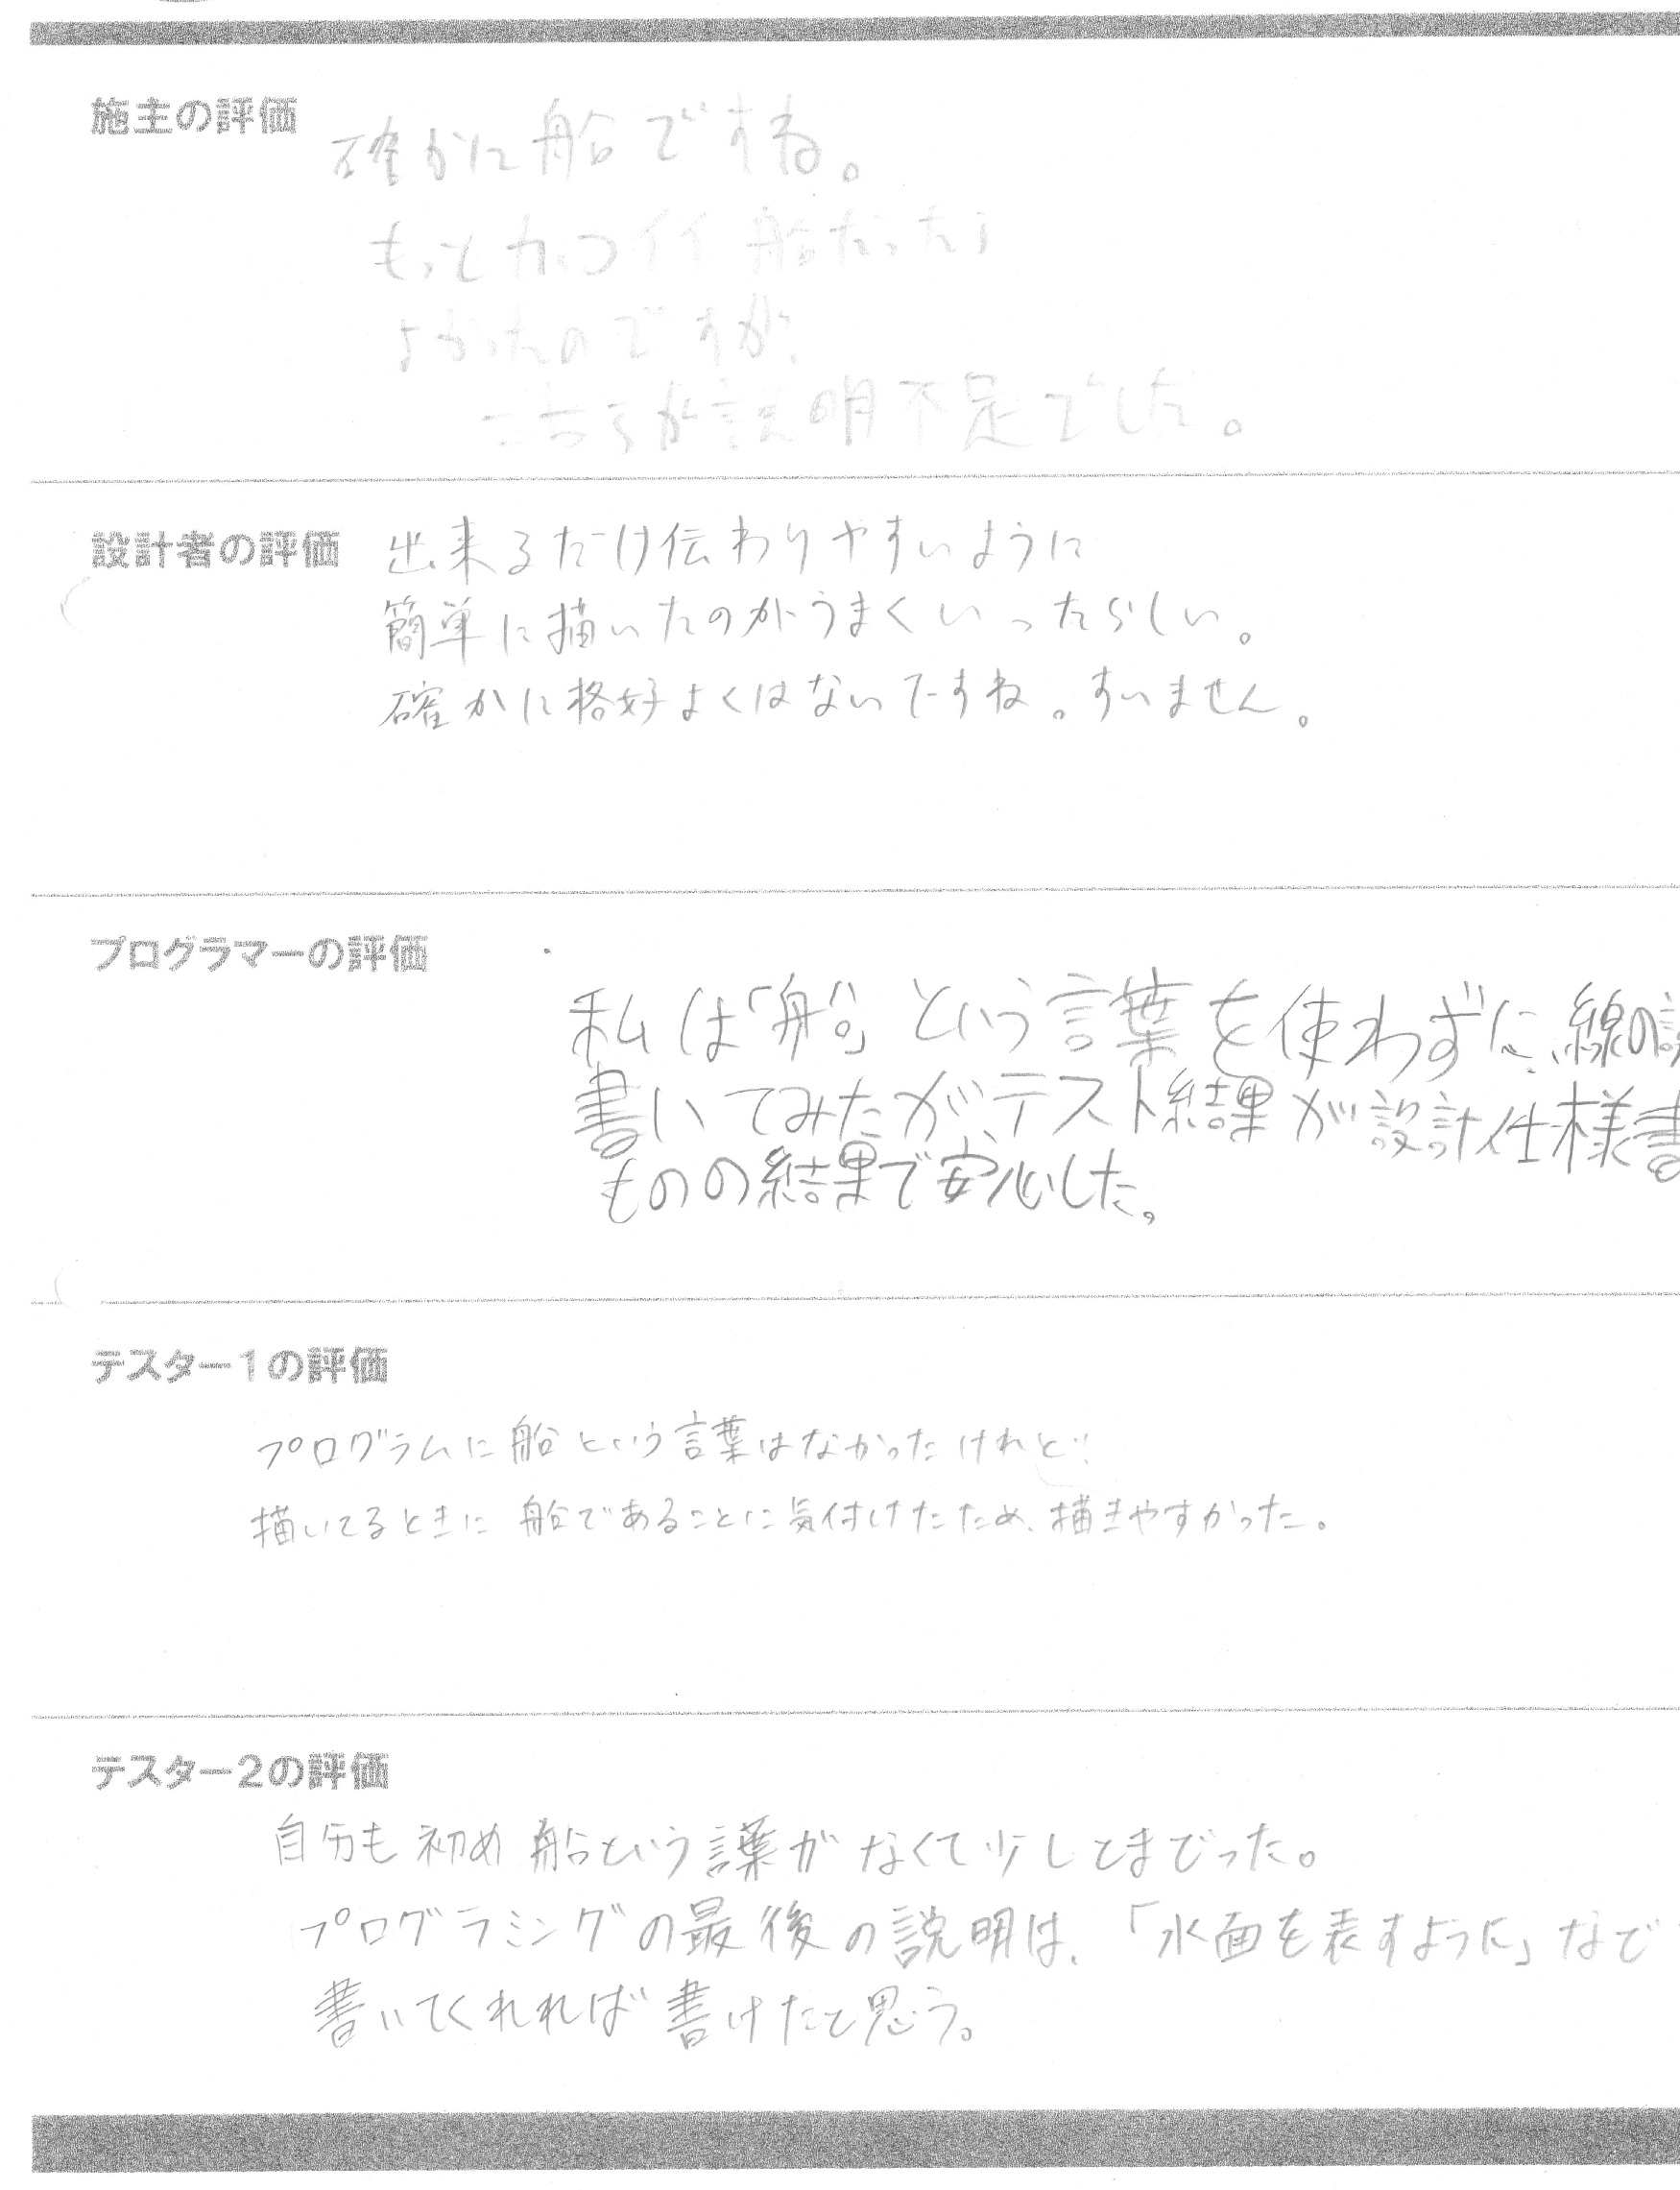 施主の評価
確かに船ですね。
もっとカッコイイ船だったら
よかったのですが、
こちらが説明不足でした。
設計者の評価
出来るだけ伝わりやすいように
簡単に描いたのがうまくいったらしい。
確かに格好よくはないですね。すいません。
プログラマーの評価
私は「船」という言葉を使わずに、線の説
書いてみたが、テスト結果が設計仕様書
ものの結果で安心した。
テスター1の評価
プログラムに船という言葉はなかったけれど!
描いてるときに船であることに気付けたため、描きやすかった。
テスター2の評価
自分も初め船という言葉がなくて少しとまどった。
プログラミングの最後の説明は、「水面を表すように」など
書いてくれれば書けたと思う。